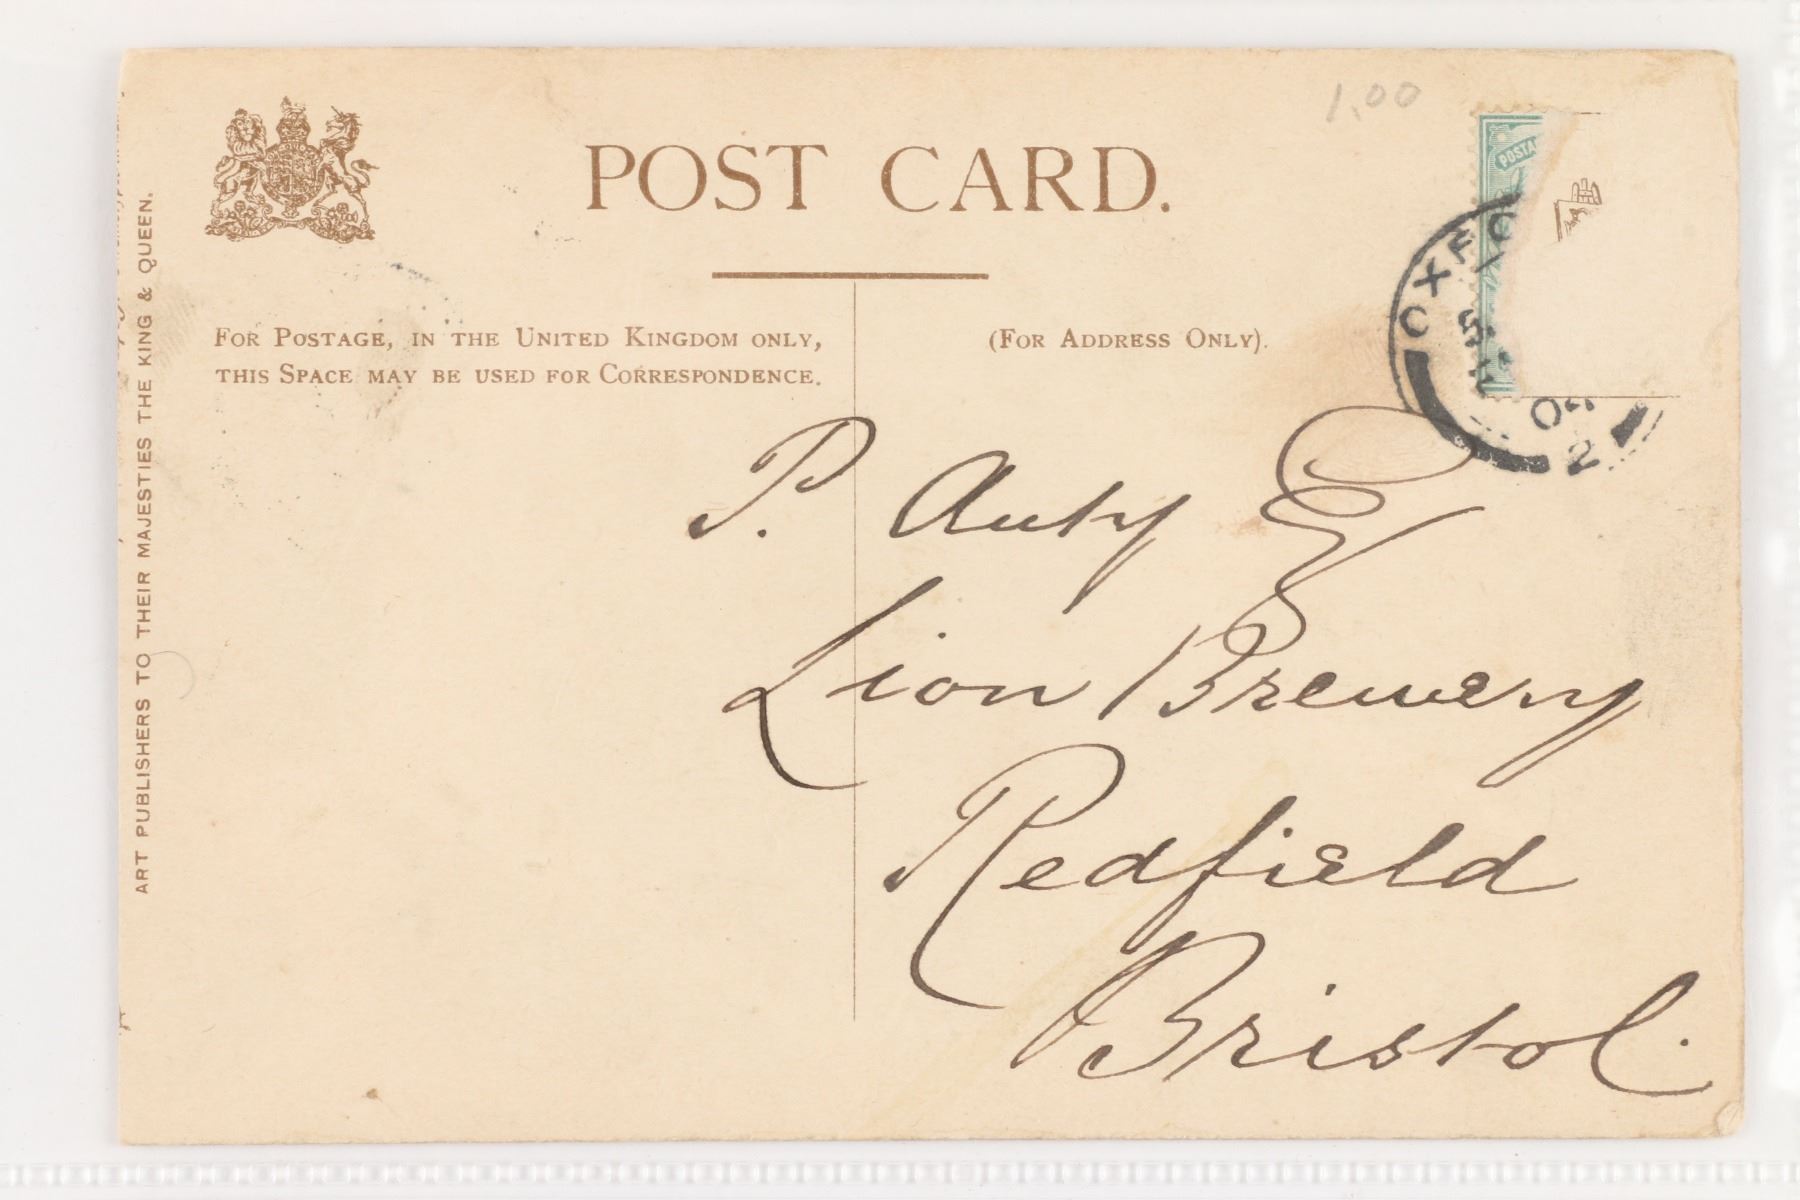 1.00
POST CARD.
POSTA
OXFO
04
2
FOR POSTAGE, IN THE UNITED KINGDOM ONLY,
THIS SPACE MAY BE USED FOR CORRESPONDENCE.
(FOR ADDRESS ONLY).
P. Auty Esq
Lion Brewery
Redfield
Bristol.
ART PUBLISHERS TO THEIR MAJESTIES THE KING & QUEEN.